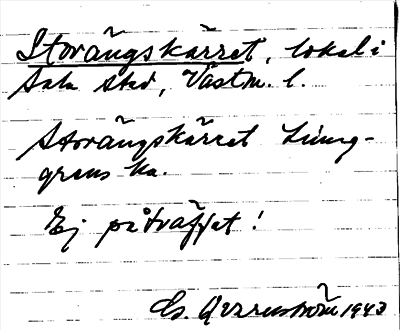 Storängskärret, lokal i
Sala stad, Västm. l.
Storängskärret Ljung-
grens ka.
Ej påträffat!
1943